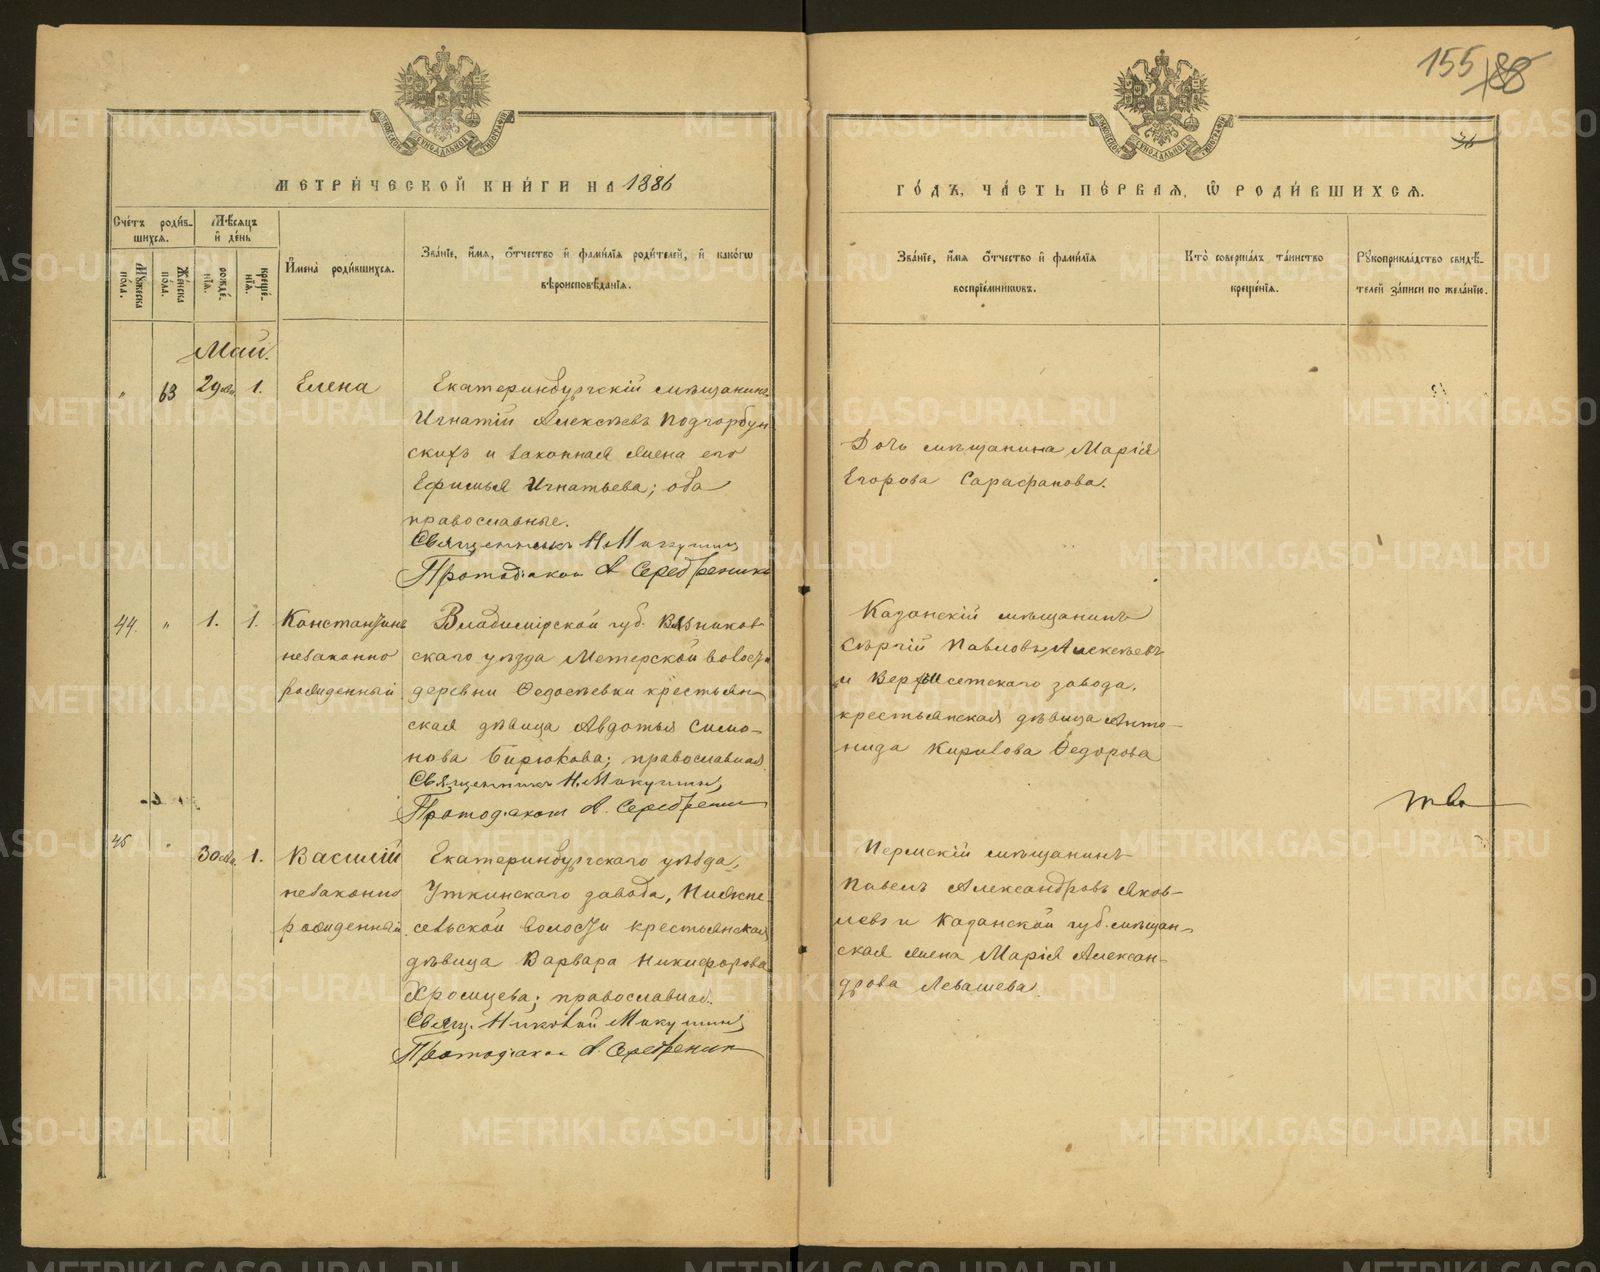 155 88
36
МЕТРИ́ЧЕСКОЙ КНИ́ГИ НА 1886
ГО́ДЪ, ЧА́СТЬ ПЕ́РВАЯ, Ѿ РОДИ́ВШИХСЯ.
Сче́тъ роди́в-
шихся.
Мѣ́сяцъ
и́ де́нь
Мꙋ́жеска по́ла.
Же́нска по́ла.
рожде́нїя.
креще́нїя.
И҆мена̀ роди́вшихся.
Зва́нїе, и҆́мя, ѻ҆́тчество и҆ фами́лїя роди́телей, и҆ како́гѡ
вѣроисповѣ́данїя.
Зва́нїе, и҆́мя ѻ҆́тчество и҆ фами́лїя
воспрїе́мникѡвъ.
Кто̀ соверша́лъ та́инство
креще́нїя.
Рꙋкоприкла́дство свидѣ́-
телей за́писи по жела́нїю.
Май.
" 63 29 апр. 1. Елена
Екатеринбургскій мѣщанинъ
Игнатій Алексѣевъ Подгорбун-
скихъ и законная жена его
Ефимья Игнатьева; оба
православные.
Священникъ Н. Макушинъ
Протодіакон А Серебреник
Дочь мѣщанина Марія
Егорова Сарафанова.
44. " 1. 1. Константинъ
незаконно
рожденный
Владимірской губ. Вязников-
скаго уѣзда Мстерской волости
деревни Ѳедосѣевки крестьян-
ская дѣвица Авдотья Симо-
нова Бирюкова; православная.
Священникъ Н. Макушинъ
Протодіакон А. Серебреник
Казанскій мѣщанинъ
Сергій Павловъ Алексѣевъ
и Верхисетскаго завода,
крестьянская дѣвица Анто-
нида Кирилова Ѳедорова
45 " 30 апр. 1. Василій
незаконно
рожденный
Екатеринбургскаго уѣзда,
Уткинскаго завода, Нижне-
сельской волости крестьянская
дѣвица Варвара Никифорова
Хромцева; православная.
Свящ. Николай Макушинъ
Протодіакон А. Серебреник
Пермскій мѣщанинъ
Павелъ Александровъ Яков-
левъ и Казанской губ. мѣщан-
ская жена Марія Алексан-
дрова Левашева.
METRIKI.GASO-URAL.RU